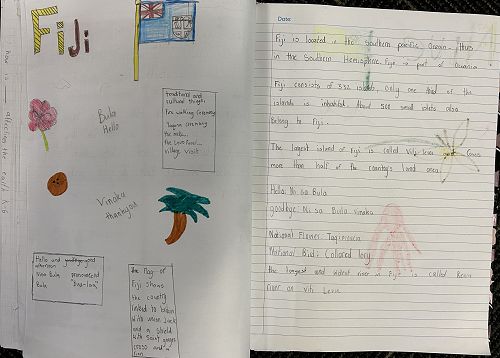 FiJi
Bula
Hello
traditional and
cultural things:
Fire walking ceremony
Yaqona ceremony
the meke
the Lovo Feast
village visit
Vinaka
thankyou
Hello and good
afternoon
Bula
the flag of
Fiji shows
the country
linked to
with union Jack
and a shield
with Saint
cross and a
lion
Date:
Fiji is located in the Southern pacific Ocean. Thus
in the Southern Hemisphere. Fiji is part of Oceania
Fiji consists of 332 islands. Only one third of the
islands is inhabited. About 500 small islets also
belong to Fiji.
The largest island of Fiji is called Viti levu
more than half of the country's land area.
Hello: Ni sa Bula
goodbye: Ni sa Bula vinaka
National Flower: Tagimoucia
National Bird: Collared lory
the longest and widest river in Fiji is called Rewa
river on Viti Levu